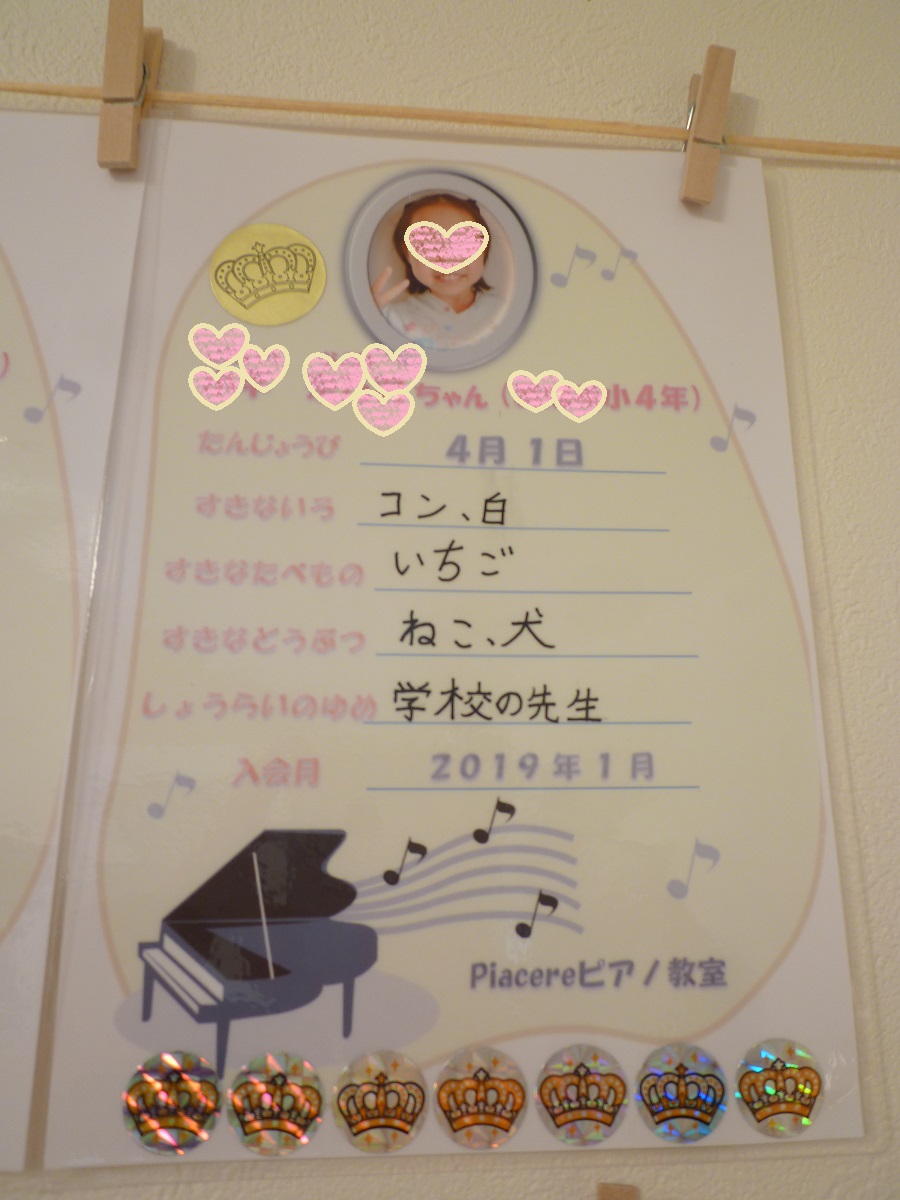 ちゃん（ 小4年）
たんじょうび 4月 1日
すきないろ コン、白
すきなたべもの いちご
すきなどうぶつ ねこ、犬
しょうらいのゆめ 学校の先生
入会月 2019年1月
Piacereピアノ教室